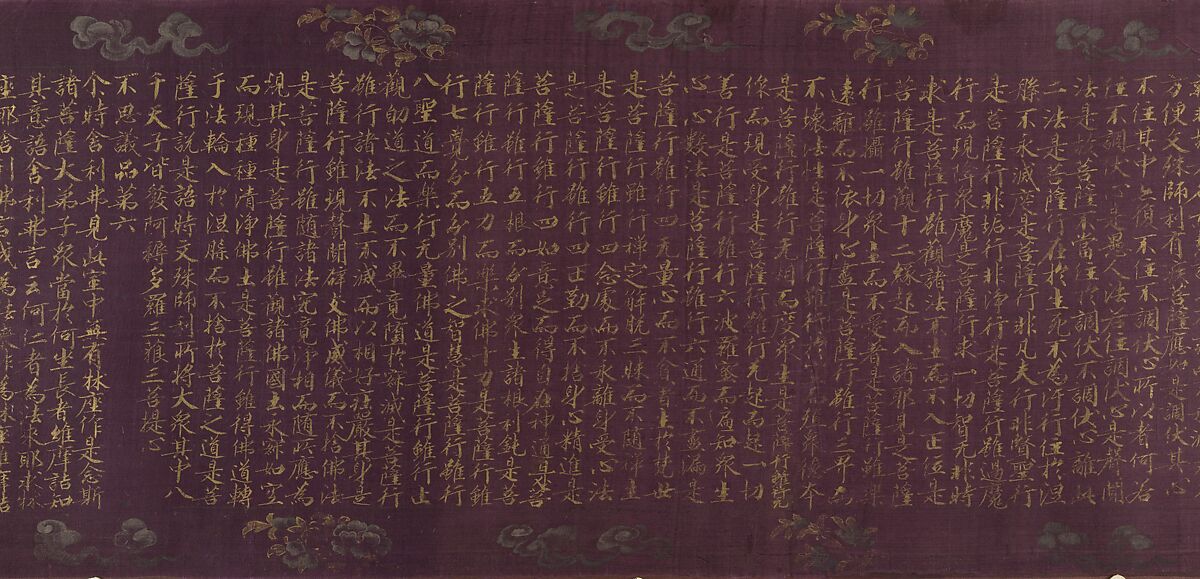 方便文殊師利有疾菩薩應如是調伏其心
不住其中亦復不住不調伏心所以者何若
住不調伏心是愚人法若住調伏心是聲聞
法是故菩薩不當住於調伏不調伏心離此
二法是菩薩行在於生死不為汙行住於涅
槃不永滅度是菩薩行非凡夫行非賢聖行
是菩薩行非垢行非淨行是菩薩行雖過魔
行而現降眾魔是菩薩行求一切智无非時
求是菩薩行雖觀諸法不生而不入正位是
菩薩行雖觀十二緣起而入諸邪見是菩薩
行雖攝一切眾生而不愛著是菩薩行雖樂
遠離而不依身心盡是菩薩行雖行三界而
不壞法性是菩薩行雖行於空而殖眾德本
是菩薩行雖行无相而度眾生是菩薩行雖行无
作而現受身是菩薩行雖行无起而起一切
善行是菩薩行雖行六波羅蜜而遍知眾生
心心數法是菩薩行雖行六通而不盡漏是
菩薩行雖行四无量心而不貪著生於梵世
是菩薩行雖行禪定解脫三昧而不隨禪生
是菩薩行雖行四念處而不永離身受心法
是菩薩行雖行四正勤而不捨身心精進是
菩薩行雖行四如意足而得自在神通是菩
薩行雖行五根而分別眾生諸根利鈍是菩
薩行雖行五力而樂求佛十力是菩薩行雖
行七覺分而分別佛之智慧是菩薩行雖行
八聖道而樂行无量佛道是菩薩行雖行止
觀助道之法而不畢竟墮於寂滅是菩薩行
雖行諸法不生不滅而以相好莊嚴其身是
菩薩行雖現聲聞辟支佛威儀而不捨佛法
是菩薩行雖隨諸法究竟淨相而隨所應為
現其身是菩薩行雖觀諸佛國土永寂如空
而現種種清淨佛土是菩薩行雖得佛道轉
于法輪入於涅槃而不捨於菩薩之道是菩
薩行說是語時文殊師利所將大眾其中八
千天子皆發阿耨多羅三藐三菩提心
不思議品第六
尒時舍利弗見此室中無有牀座作是念斯
諸菩薩大弟子眾當於何坐長者維摩詰知
其意語舍利弗言云何仁者為法來耶求牀
座耶舍利弗言我為法來非為牀座維摩詰